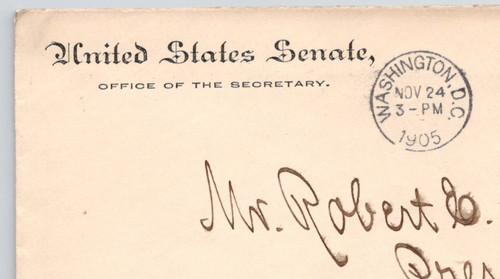 United States Senate,
OFFICE OF THE SECRETARY.
WASHINGTON, D.C.
NOV 24
3-PM
1905
Mr. Robert E.